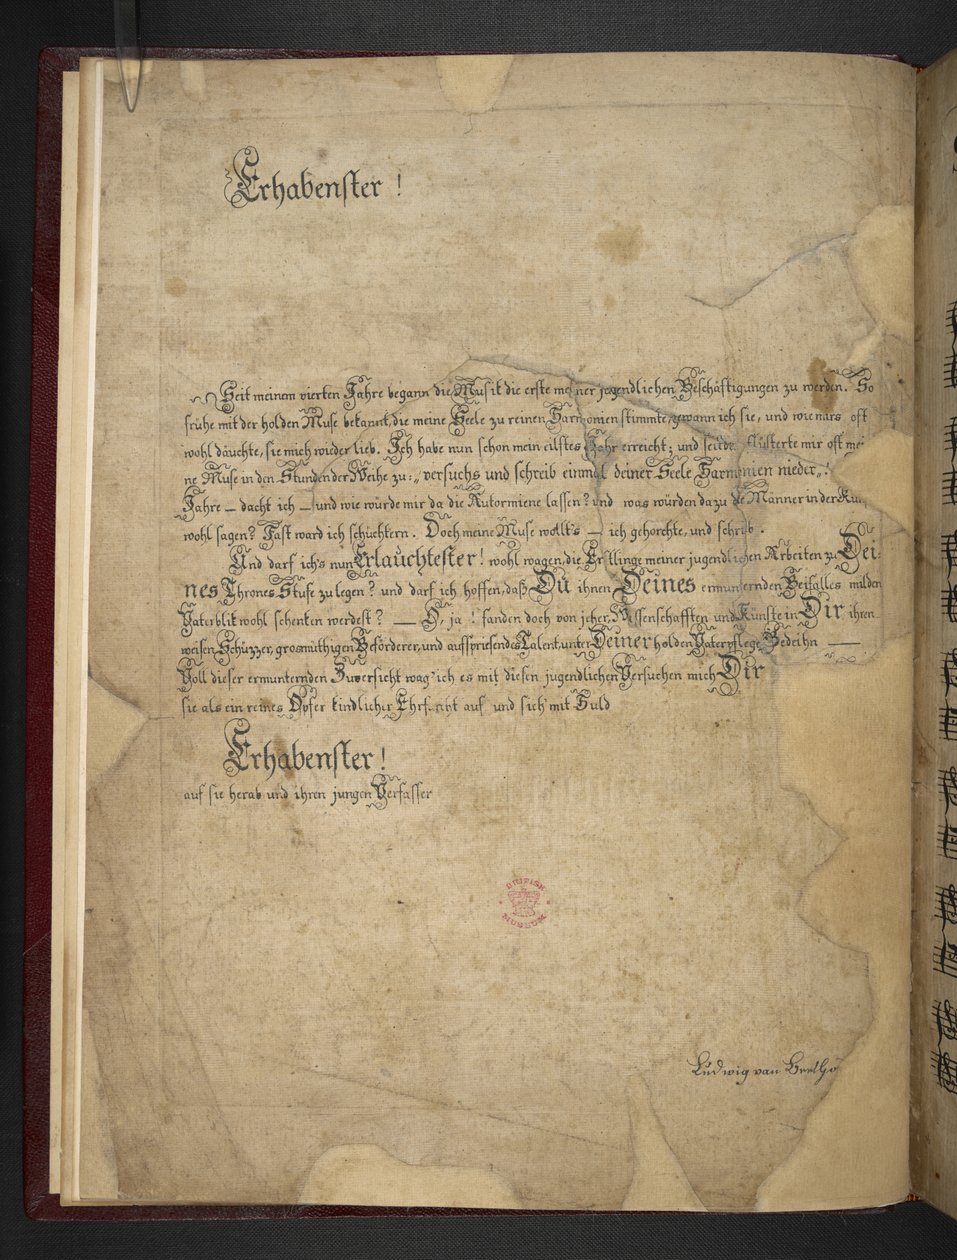 Erhabenster !
Seit meinem vierten Jahre begann die Musik die erste meiner jugendlichen Beschäftigungen zu werden. So
frühe mit der holden Muse bekannt, die meine Seele zu reinen Harmonien stimmte, gewann ich sie, und wie mirs oft
wohl däuchte, sie mich wieder lieb. Ich habe nun schon mein eilftes Jahr erreicht; und seitdem flüsterte mir oft mei
ne Muse in den Stunden der Weihe zu: „versuchs und schreib einmal deiner Seele Harmonien nieder„!
Jahre — dacht ich — und wie würde mir da die Autormiene lassen? und was würden dazu die Männer in der Kun
wohl sagen? Fast ward ich schüchtern. Doch meine Muse wollt's — ich gehorchte, und schrieb.
Und darf ich's nun Erlauchtester! wohl wagen, die Erstlinge meiner jugendlichen Arbeiten zu Dei-
nes Thrones Stufe zu legen? und darf ich hoffen, daß Du ihnen Deines ermunternden Beifalles milden
Vaterblik wohl schenken werdest? — O, ja! fanden doch von jeher Wissenschafften und Künste in Dir ihren
weisen Schüzzer, grosmüthigen Beförderer, und aufspriesendes Talent unter Deiner holden Vaterpflege Gedeihn —
Voll dieser ermunternden Zuversicht wag' ich es mit diesen jugendlichen Versuchen mich Dir
sie als ein reines Opfer kindlicher Ehrfurcht auf und sieh' mit Huld
Erhabenster !
auf sie herab und ihren jungen Verfasser
BRITISH
MUSEUM
Ludwig van Beetho